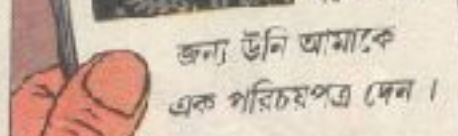 জন্য উনি আমাকে
এক পরিচয়পত্র দেন ।